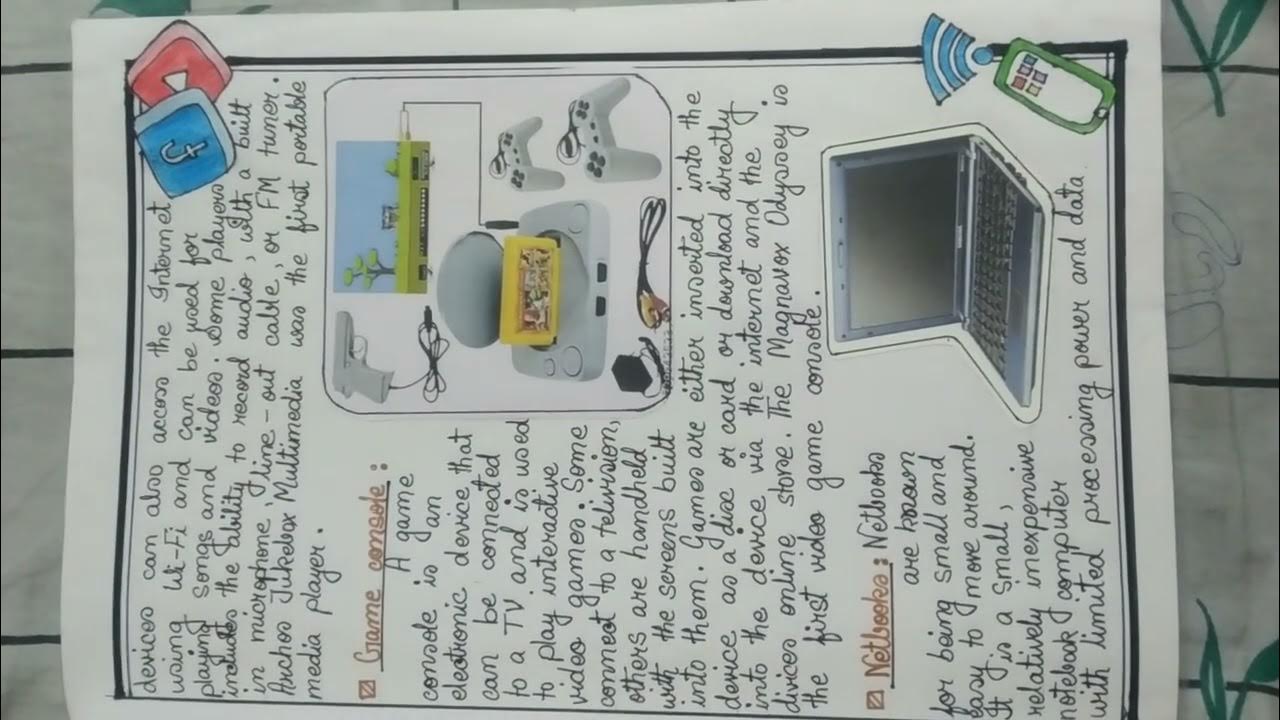 devices can also access the Internet
using Wi-Fi and can be used for
playing songs and videos. Some players
includes the ability to record audio, with a built
in microphone, line-out cable, or FM tuner.
Archos Jukebox Multimedia was the first portable
media player.
Game console:
A game
console is an
electronic device that
can be connected
to a TV and is used
to play interactive
video games. Some
connect to a television,
others are handheld
with the screens built
into them. Games are either inserted into the
device as a disc or card or download directly
into the device via the internet and the
divices online store. The Magnavox Odyssey is
the first video game console.
Netbooks: Netbooks
are known
for being small and
easy to move around.
It is a small,
relatively inexpensive
notebook computer
with limited processing power and data
f